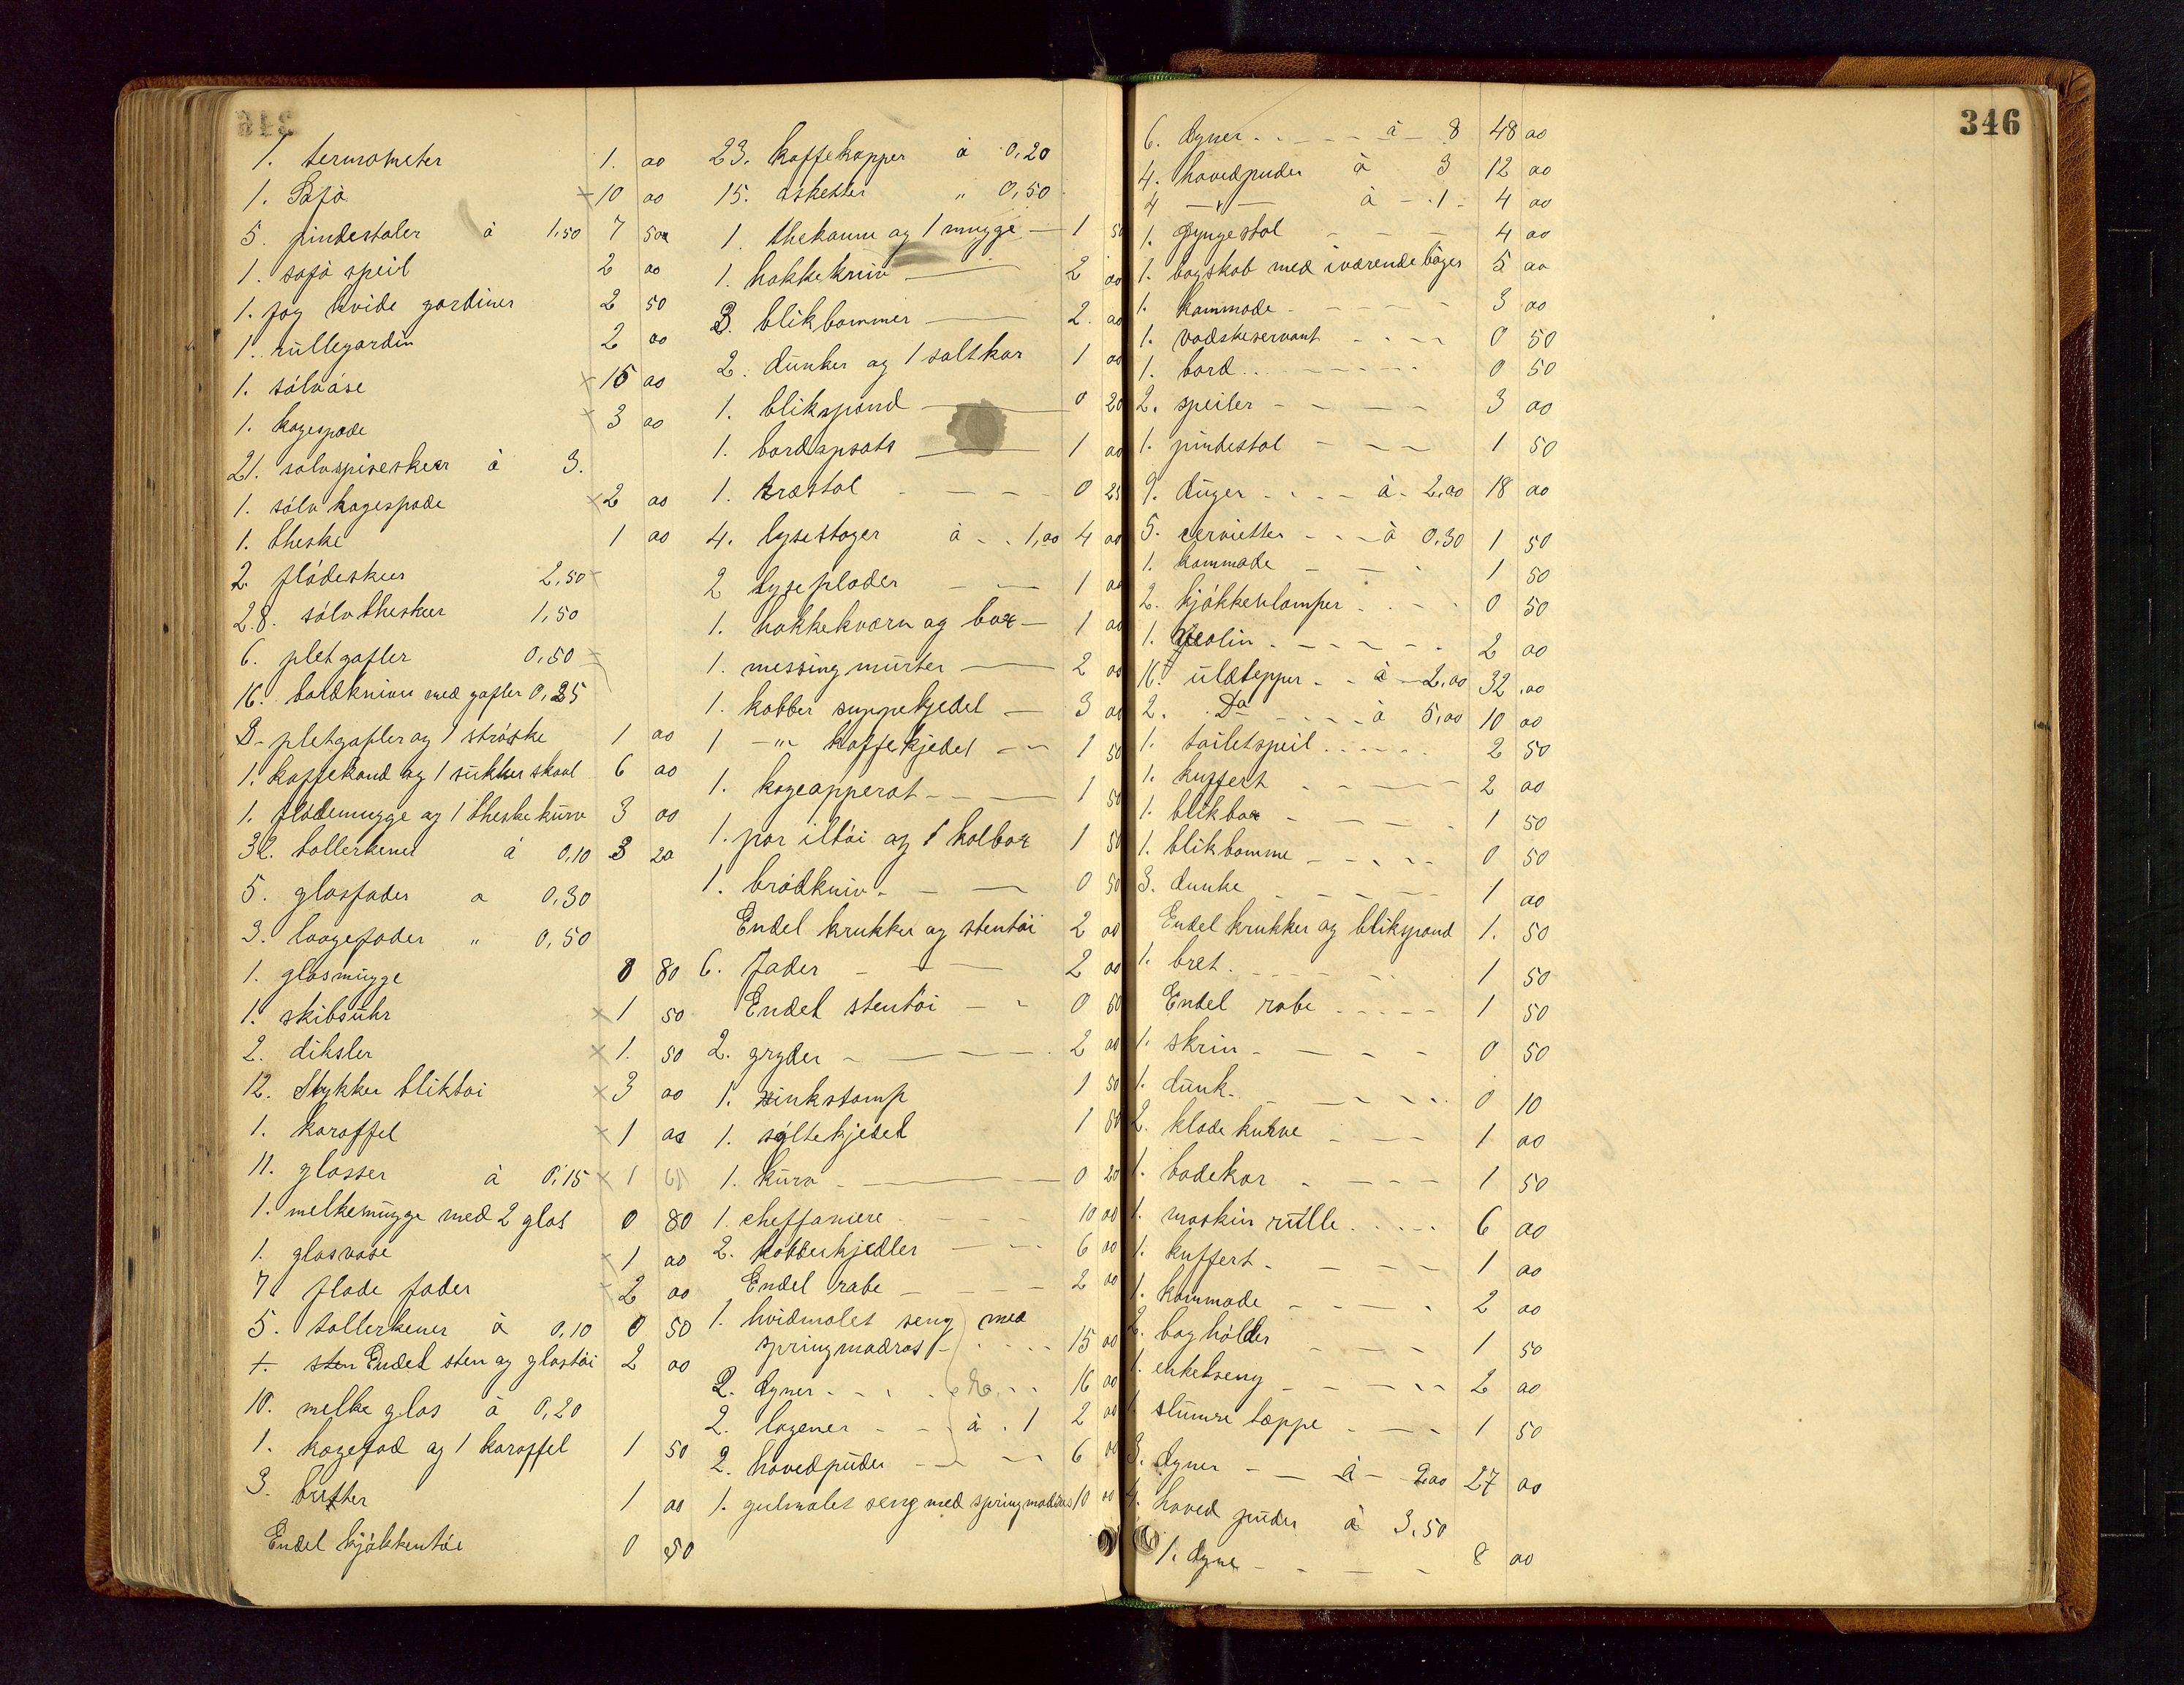 1. termometer 1. 00
1. Sofa 10 00
5. pindestoler à 1,50 7 50
1. sofa speil 2 00
1. fag hvide gardiner 2 50
1. rullegardin 2 00
1. sølvøse 15 00
1. kagespade 3 00
21. sølvspiseskeer à 3.
1. sølv kagespade 2 00
1. theske 1 00
2 flødeskeer 2,50
28. sølv theskeer 1,50
6. pletgafler 0,50
16. bordkniver med gafler 0,25
3 pletgafler og 1 strøske 1 00
1. kaffekand og 1 sukker skaal 6 00
1. flødemugge og 1 theske kurv 3 00
32. tallerkener à 0,10 3 20
5. glasfader a 0,30
3. laagefader " 0,50
1. glasmugge 0 80
1. skibsuhr 1 50
2. diksler 1. 50
12. Stykker bliktøi 3 00
1. karaffel 1 00
11. glasser à 0,15 1 65
1. melkemugge med 2 glas 0 80
1. glasvase 1 00
7 flade fader 2 00
5. tallerkener à 0,10 0 50
1. sten Endel sten og glastøi 2 00
10. melke glas à 0,20
1. kagefad og 1 karaffel 1 50
3. bøtter 1 00
Endel kjøkkentøi 0 50
23. kaffekopper à 0,20
15. asketter " 0,50
1. thekanne og 1 mugge 1 50
1. hakkekniv 2 00
3. blikbommer 2. 00
2. dunker og 1 saltkar 1 00
1. blikspand 0 20
1. bordopsats 1 00
1. træstol 0 25
4. lysestager à 1,00 4 00
2 lyseplader 1 00
1. hakkekværn og box 1 00
1. messing murter 2 00
1. kobber suppekjedel 3 00
1 -"- kaffekjedel 1 50
1. kogeapperat 1 50
1. par iltøi og 1 kolbox 1 50
1. brødkniv 0 50
Endel krukker og stentøi 2 00
6. Fader 2 00
Endel stentøi 0 50
2. gryder 2 00
1. sinkstamp 1 50
1. syltekjedel 1 80
1. kurv 0 20
1. cheffoniere 10 00
2. kobberkjedler 6 00
Endel rabe 2 00
1. hvidmalet seng med
springmadras 15 00
2. dyner 16 00
2. lagener à 1 2 00
2. hovedpuder 6 00
1. gulmalet seng med springmadras 10 00
346
6. dyner à 8 48 00
4. hovedpuder à 3 12 00
4 -"- à 1 4 00
1. Gyngestol 4 00
1. bogskab med iværende bøger 5 00
1. kammode 3 00
1. vadskeservant 0 50
1. bord 0 50
2. speiler 3 00
1. pindestol 1 50
9. duger à 2,00 18 00
5. servietter à 0,30 1 50
1. kommode 1 50
2. kjøkkenlamper 0 50
1. Violin 2 00
16. uldtepper à 2,00 32,00
2. Do à 5,00 10 00
1. toiletspeil 2 50
1. kuffert 2 00
1. blikbox 1 50
1. blikbomme 0 50
3. dunke 1 00
Endel krukker og blikspand 1. 50
1. bret 1 50
Endel rabe 1 50
1. skrin 0 50
1. dunk 0 10
2. klade kurve 1 00
1. badekar 1 50
1. maskin rulle 6 00
1. kuffert 1 00
1. kammode 2 00
2. bog hølder 1 50
1. enkeltseng 2 00
1. slumre tæppe 1 50
3. dyner à 9,00 27 00
4. hoved puder à 3,50
1. dyne 8 00